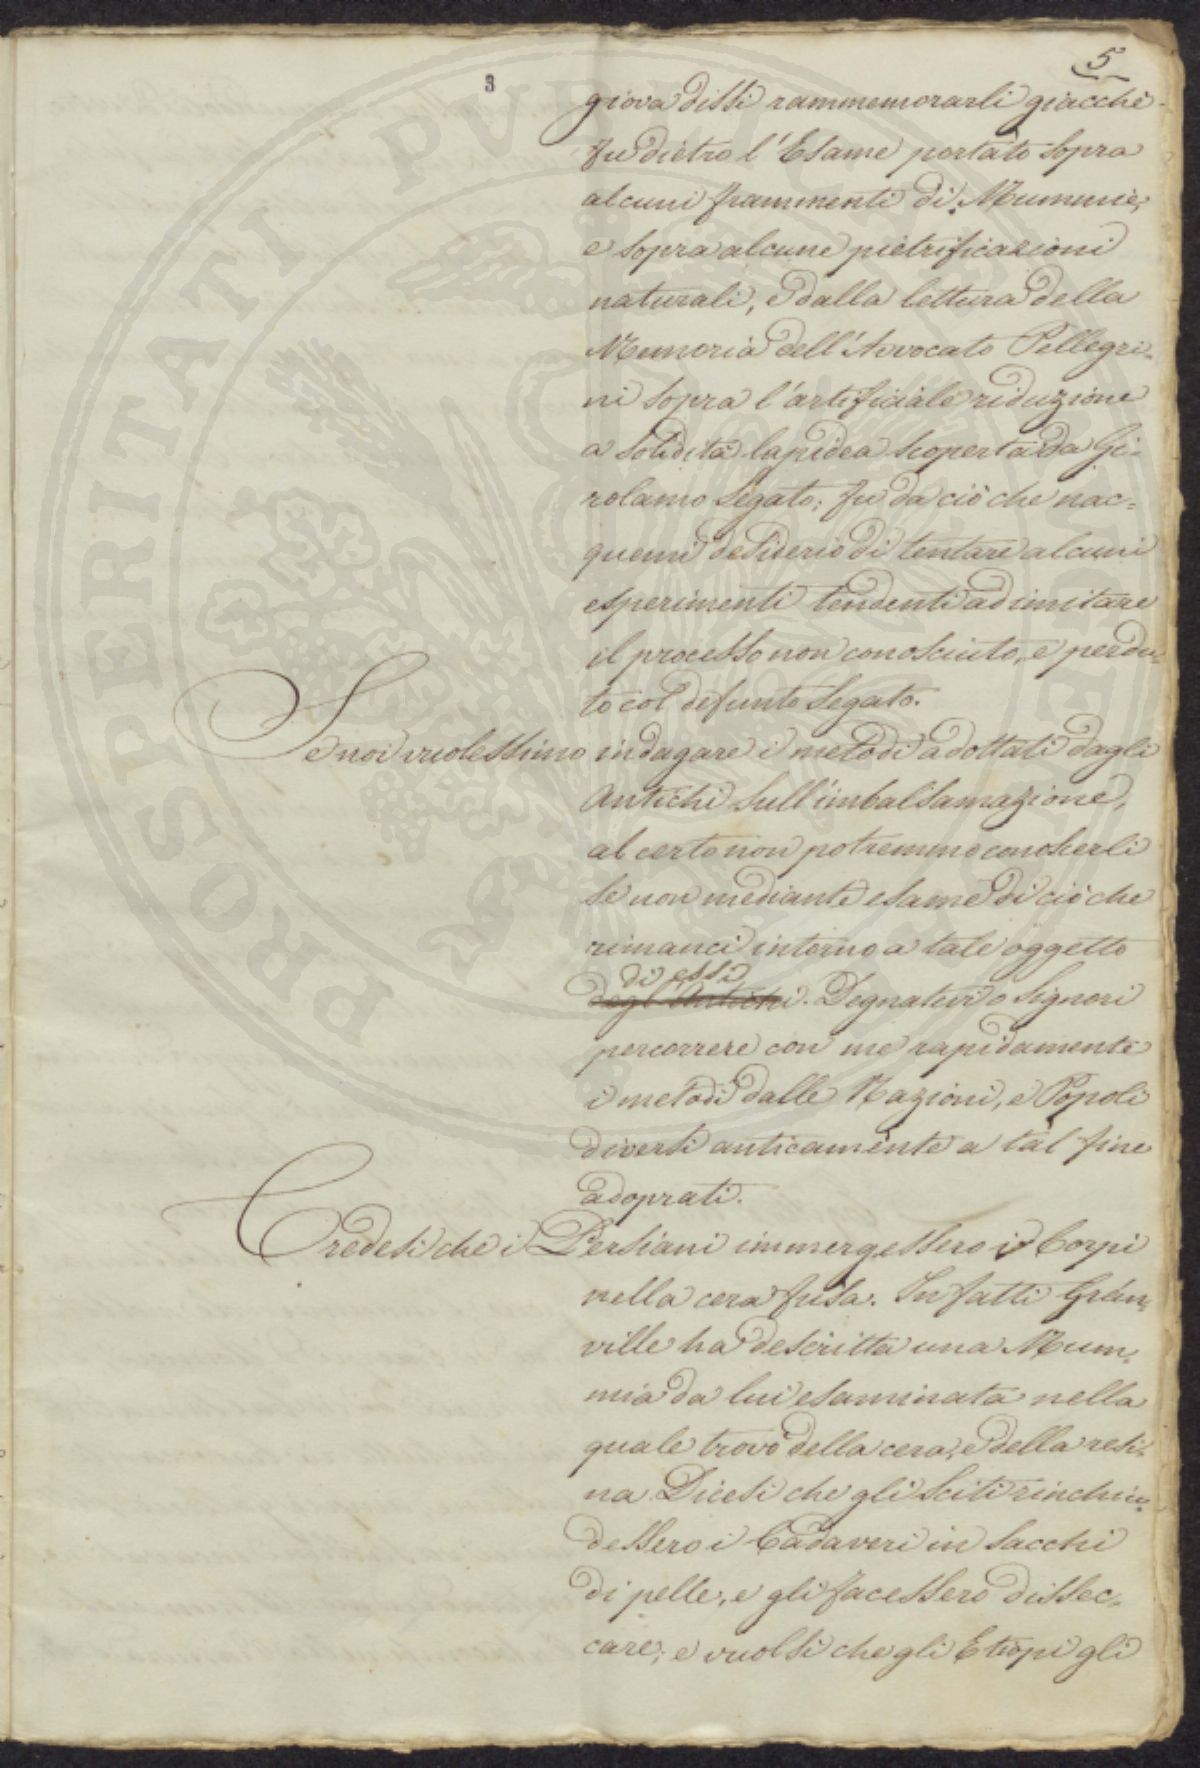 5
3
giova dissi rammemorarli giacchè
fu dietro l'Esame portato sopra
alcuni frammenti di Mummie,
e sopra alcune pietrificazioni
naturali, e dalla lettura della
Memoria dell'Avvocato Pellegri-
ni sopra l'artificiale riduzione
a solidità lapidea scoperta da Gi-
rolamo Segato; fu da ciò che nac=
quemi desiderio di tentare alcuni
esperimenti tendenti ad imitare
il processo non conosciuto, e perdu-
to col defunto Segato.
Se noi vuolessimo indagare i metodi adottati dagli
Antichi sull'imbalsamazione,
al certo non potremmo conoscerli
se non mediante esame di ciò che
rimanci intorno a tale oggetto
di essi
degl'Antichi. Degnatevi o Signori
percorrere con me rapidamente
i metodi dalle Nazioni, e Popoli
diversi anticamente a tal fine
adoprati.
Credesi che i Persiani immergessero i Corpi
nella cera fusa. In fatti Gran-
ville ha descritta una Mum-
mia da lui esaminata nella
quale trovò della cera, e della resi-
na. Dicesi che gli Sciti rinchiu-
dessero i Cadaveri in sacchi
di pelle, e gli facessero dissec-
care; e vuolsi che gli Etiopi gli
PROSPERITATI PVBLICAE